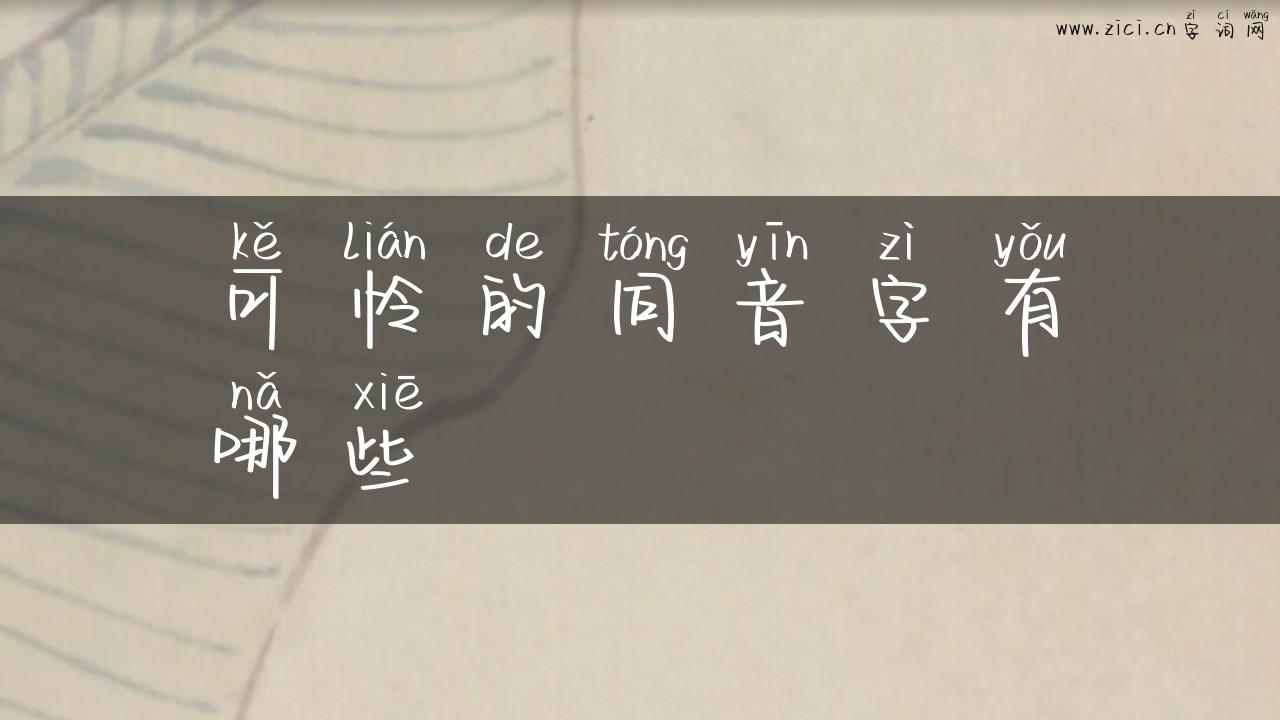 zì cí wǎng
www.zici.cn 字词网
kě lián de tóng yīn zì yǒu
可怜的同音字有
nǎ xiē
哪些